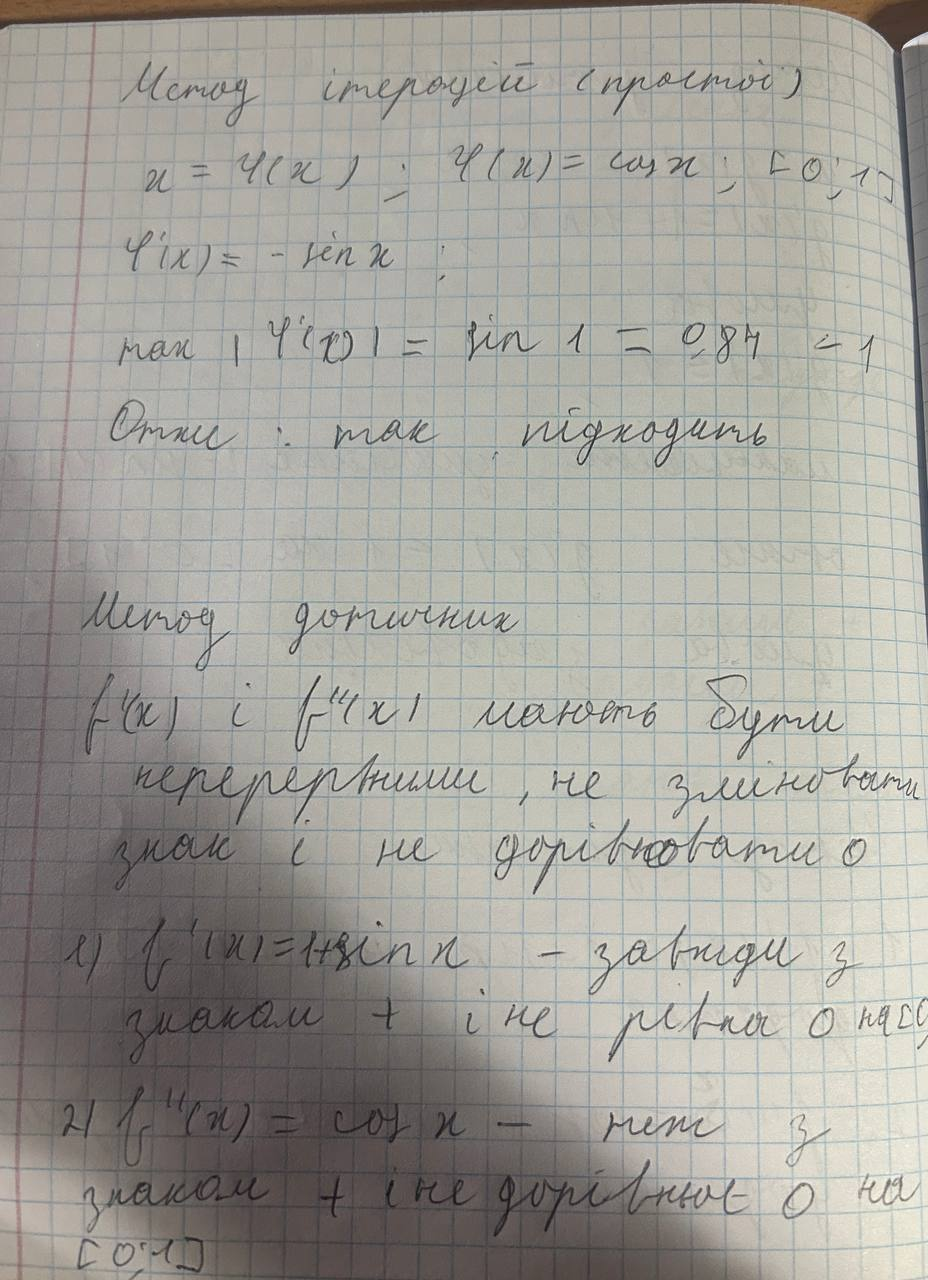 Метод ітерацій (простої)
x = φ(x) ; φ(x) = cos x ; [0;1]
φ'(x) = - sin x ;
max |φ'(x)| = sin 1 = 0,84 < 1
Отже : так підходить
Метод дотичних
f'(x) і f''(x) мають бути
неперервними , не змінювати
знак і не дорівнювати 0
1) f'(x) = 1+sin x - завжди з
знаком + і не рівна 0 на [0,
2) f''(x) = cos x - теж з
знаком + і не дорівнює 0 на
[0;1]